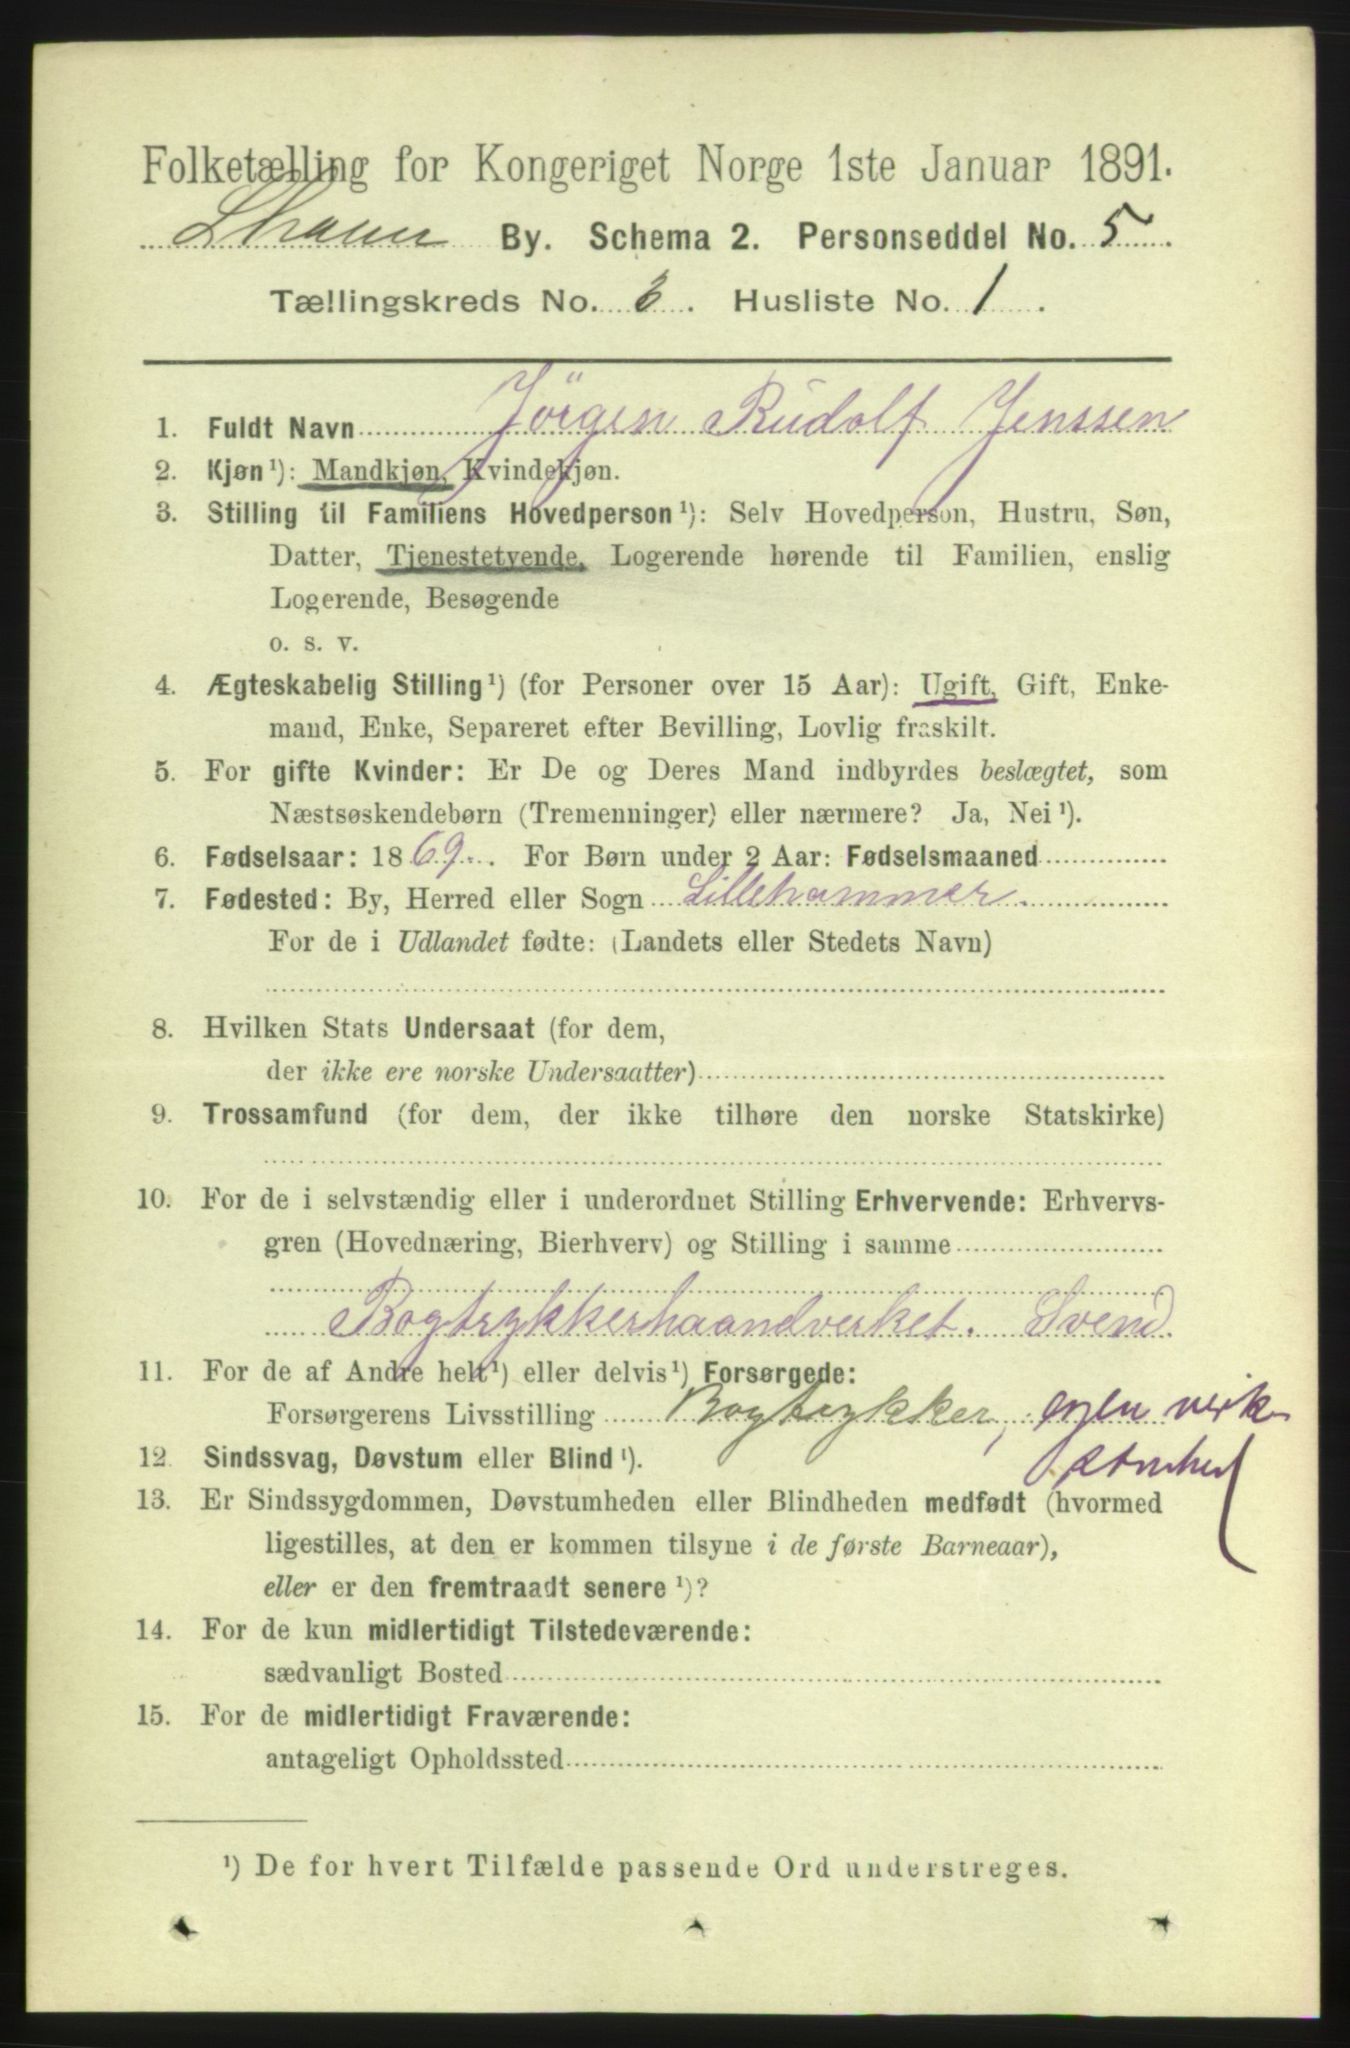 Folketælling for Kongeriget Norge 1ste Januar 1891.
Lhamer By. Schema 2. Personseddel No. 5.
Tællingskreds No. 3. Husliste No. 1.
1. Fuldt Navn Jörgen Rudolf Jenssen
2. Kjøn¹): Mandkjøn, Kvindekjøn.
3. Stilling til Familiens Hovedperson¹): Selv Hovedperson, Hustru, Søn,
Datter, Tjenestetyende, Logerende hørende til Familien, enslig
Logerende, Besøgende
o. s. v.
4. Ægteskabelig Stilling¹) (for Personer over 15 Aar): Ugift, Gift, Enke-
mand, Enke, Separeret efter Bevilling, Lovlig fraskilt.
5. For gifte Kvinder: Er De og Deres Mand indbyrdes beslægtet, som
Næstsøskendebørn (Tremenninger) eller nærmere? Ja, Nei¹).
6. Fødselsaar: 1869. For Børn under 2 Aar: Fødselsmaaned
7. Fødested: By, Herred eller Sogn Lillehammer.
For de i Udlandet fødte: (Landets eller Stedets Navn)
8. Hvilken Stats Undersaat (for dem,
der ikke ere norske Undersaatter)
9. Trossamfund (for dem, der ikke tilhøre den norske Statskirke)
10. For de i selvstændig eller i underordnet Stilling Erhvervende: Erhvervs-
gren (Hovednæring, Bierhverv) og Stilling i samme
Bogtrykkerhaandverket. Svend.
11. For de af Andre helt¹) eller delvis¹) Forsørgede:
Forsørgerens Livsstilling Bogtrykker, egen virk-
somhed
12. Sindssvag, Døvstum eller Blind¹).
13. Er Sindssygdommen, Døvstumheden eller Blindheden medfødt (hvormed
ligestilles, at den er kommen tilsyne i de første Barneaar),
eller er den fremtraadt senere¹)?
14. For de kun midlertidigt Tilstedeværende:
sædvanligt Bosted
15. For de midlertidigt Fraværende:
antageligt Opholdssted
¹) De for hvert Tilfælde passende Ord understreges.